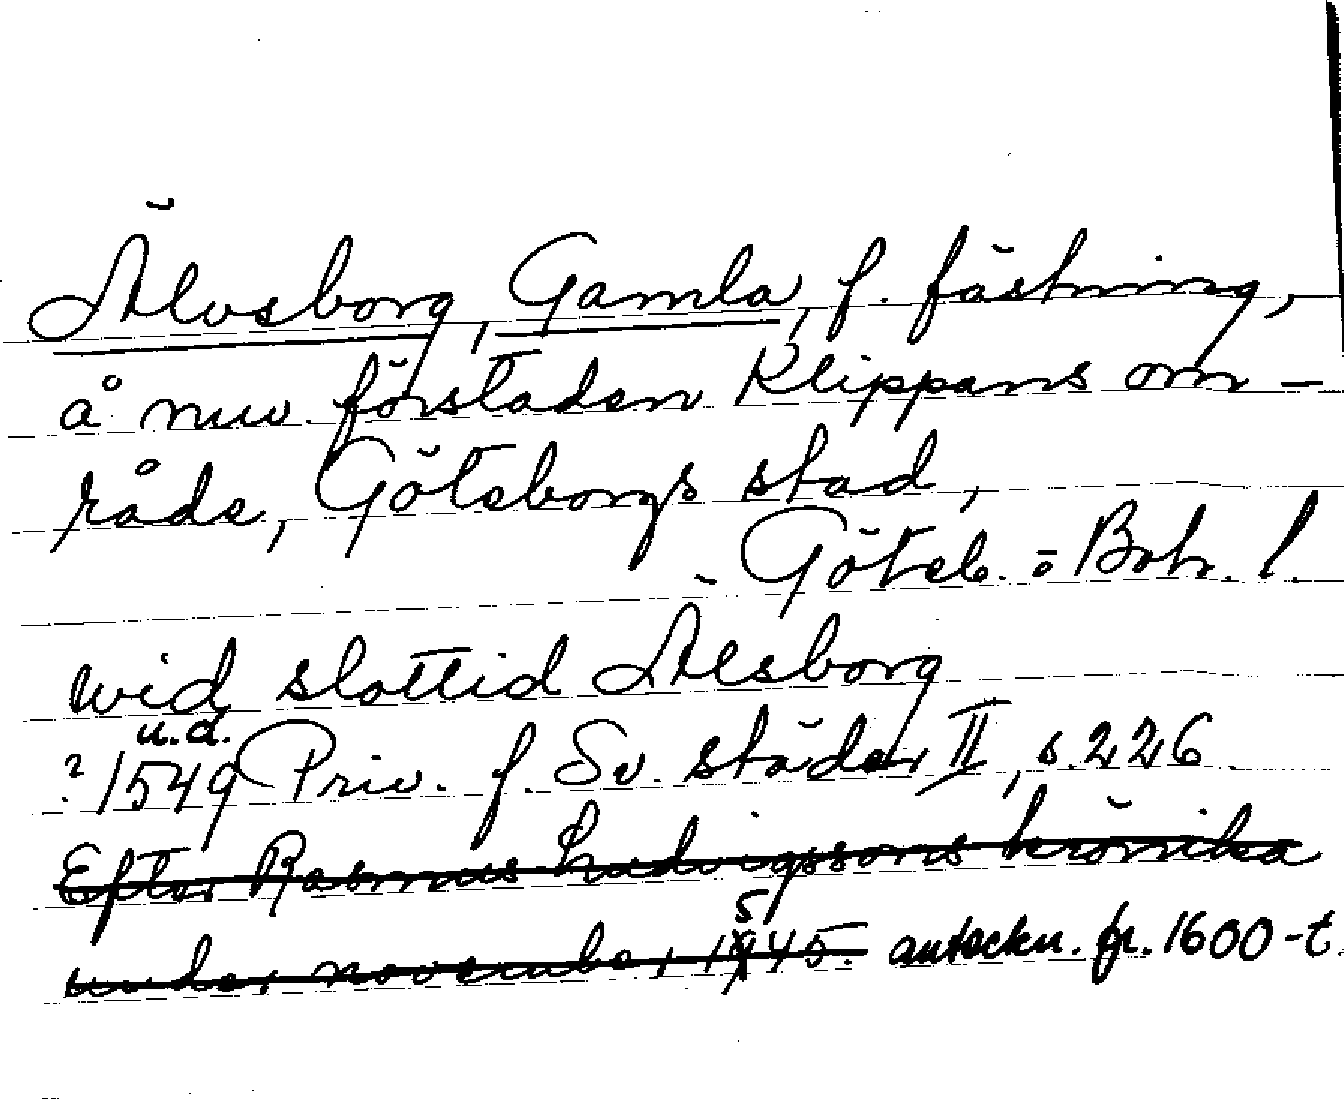 Älvsborg, Gamla, f. fästning,
å nuv. förstaden Klippans om-
råde, Göteborgs stad,
Göteb. o Boh. l.
wid slottid Älesborg
u.d.
? 1549 Priv. f. Sv. städer II, s. 226.
Efter Rasmus Ludvigssons krönika
under november 1545. anteckn. fr. 1600-t